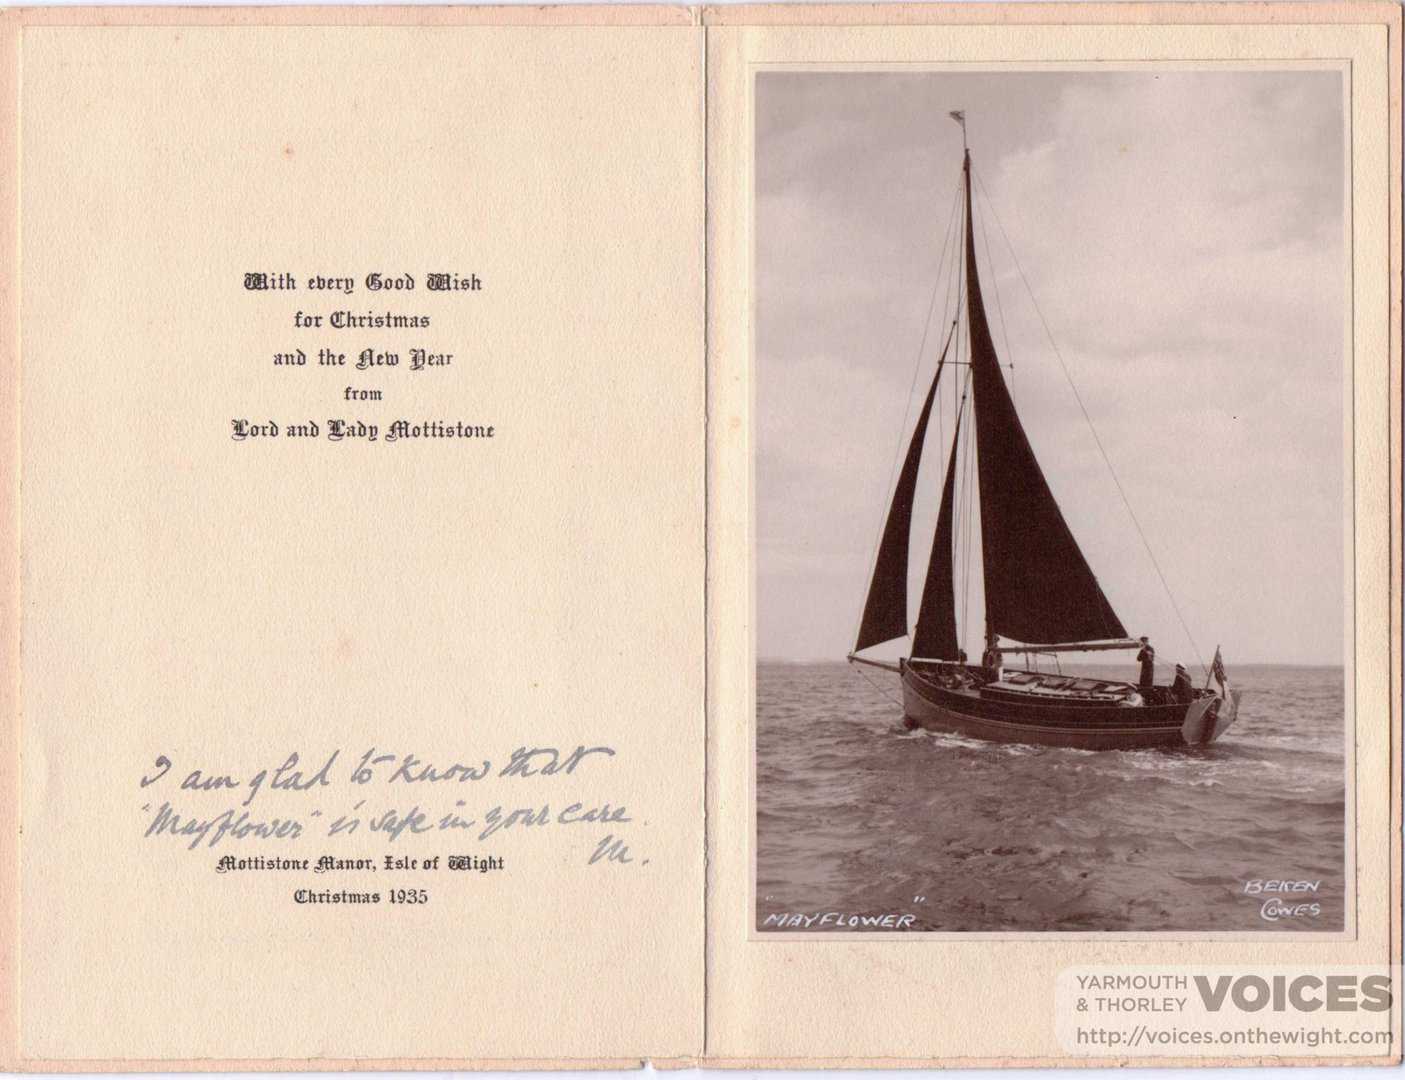 With every Good Wish
for Christmas
and the New Year
from
Lord and Lady Mottistone
I am glad to know that
"Mayflower" is safe in your care.
M.
Mottistone Manor, Isle of Wight
Christmas 1935
"MAYFLOWER"
BEKEN
COWES
YARMOUTH
& THORLEY VOICES
http://voices.onthewight.com